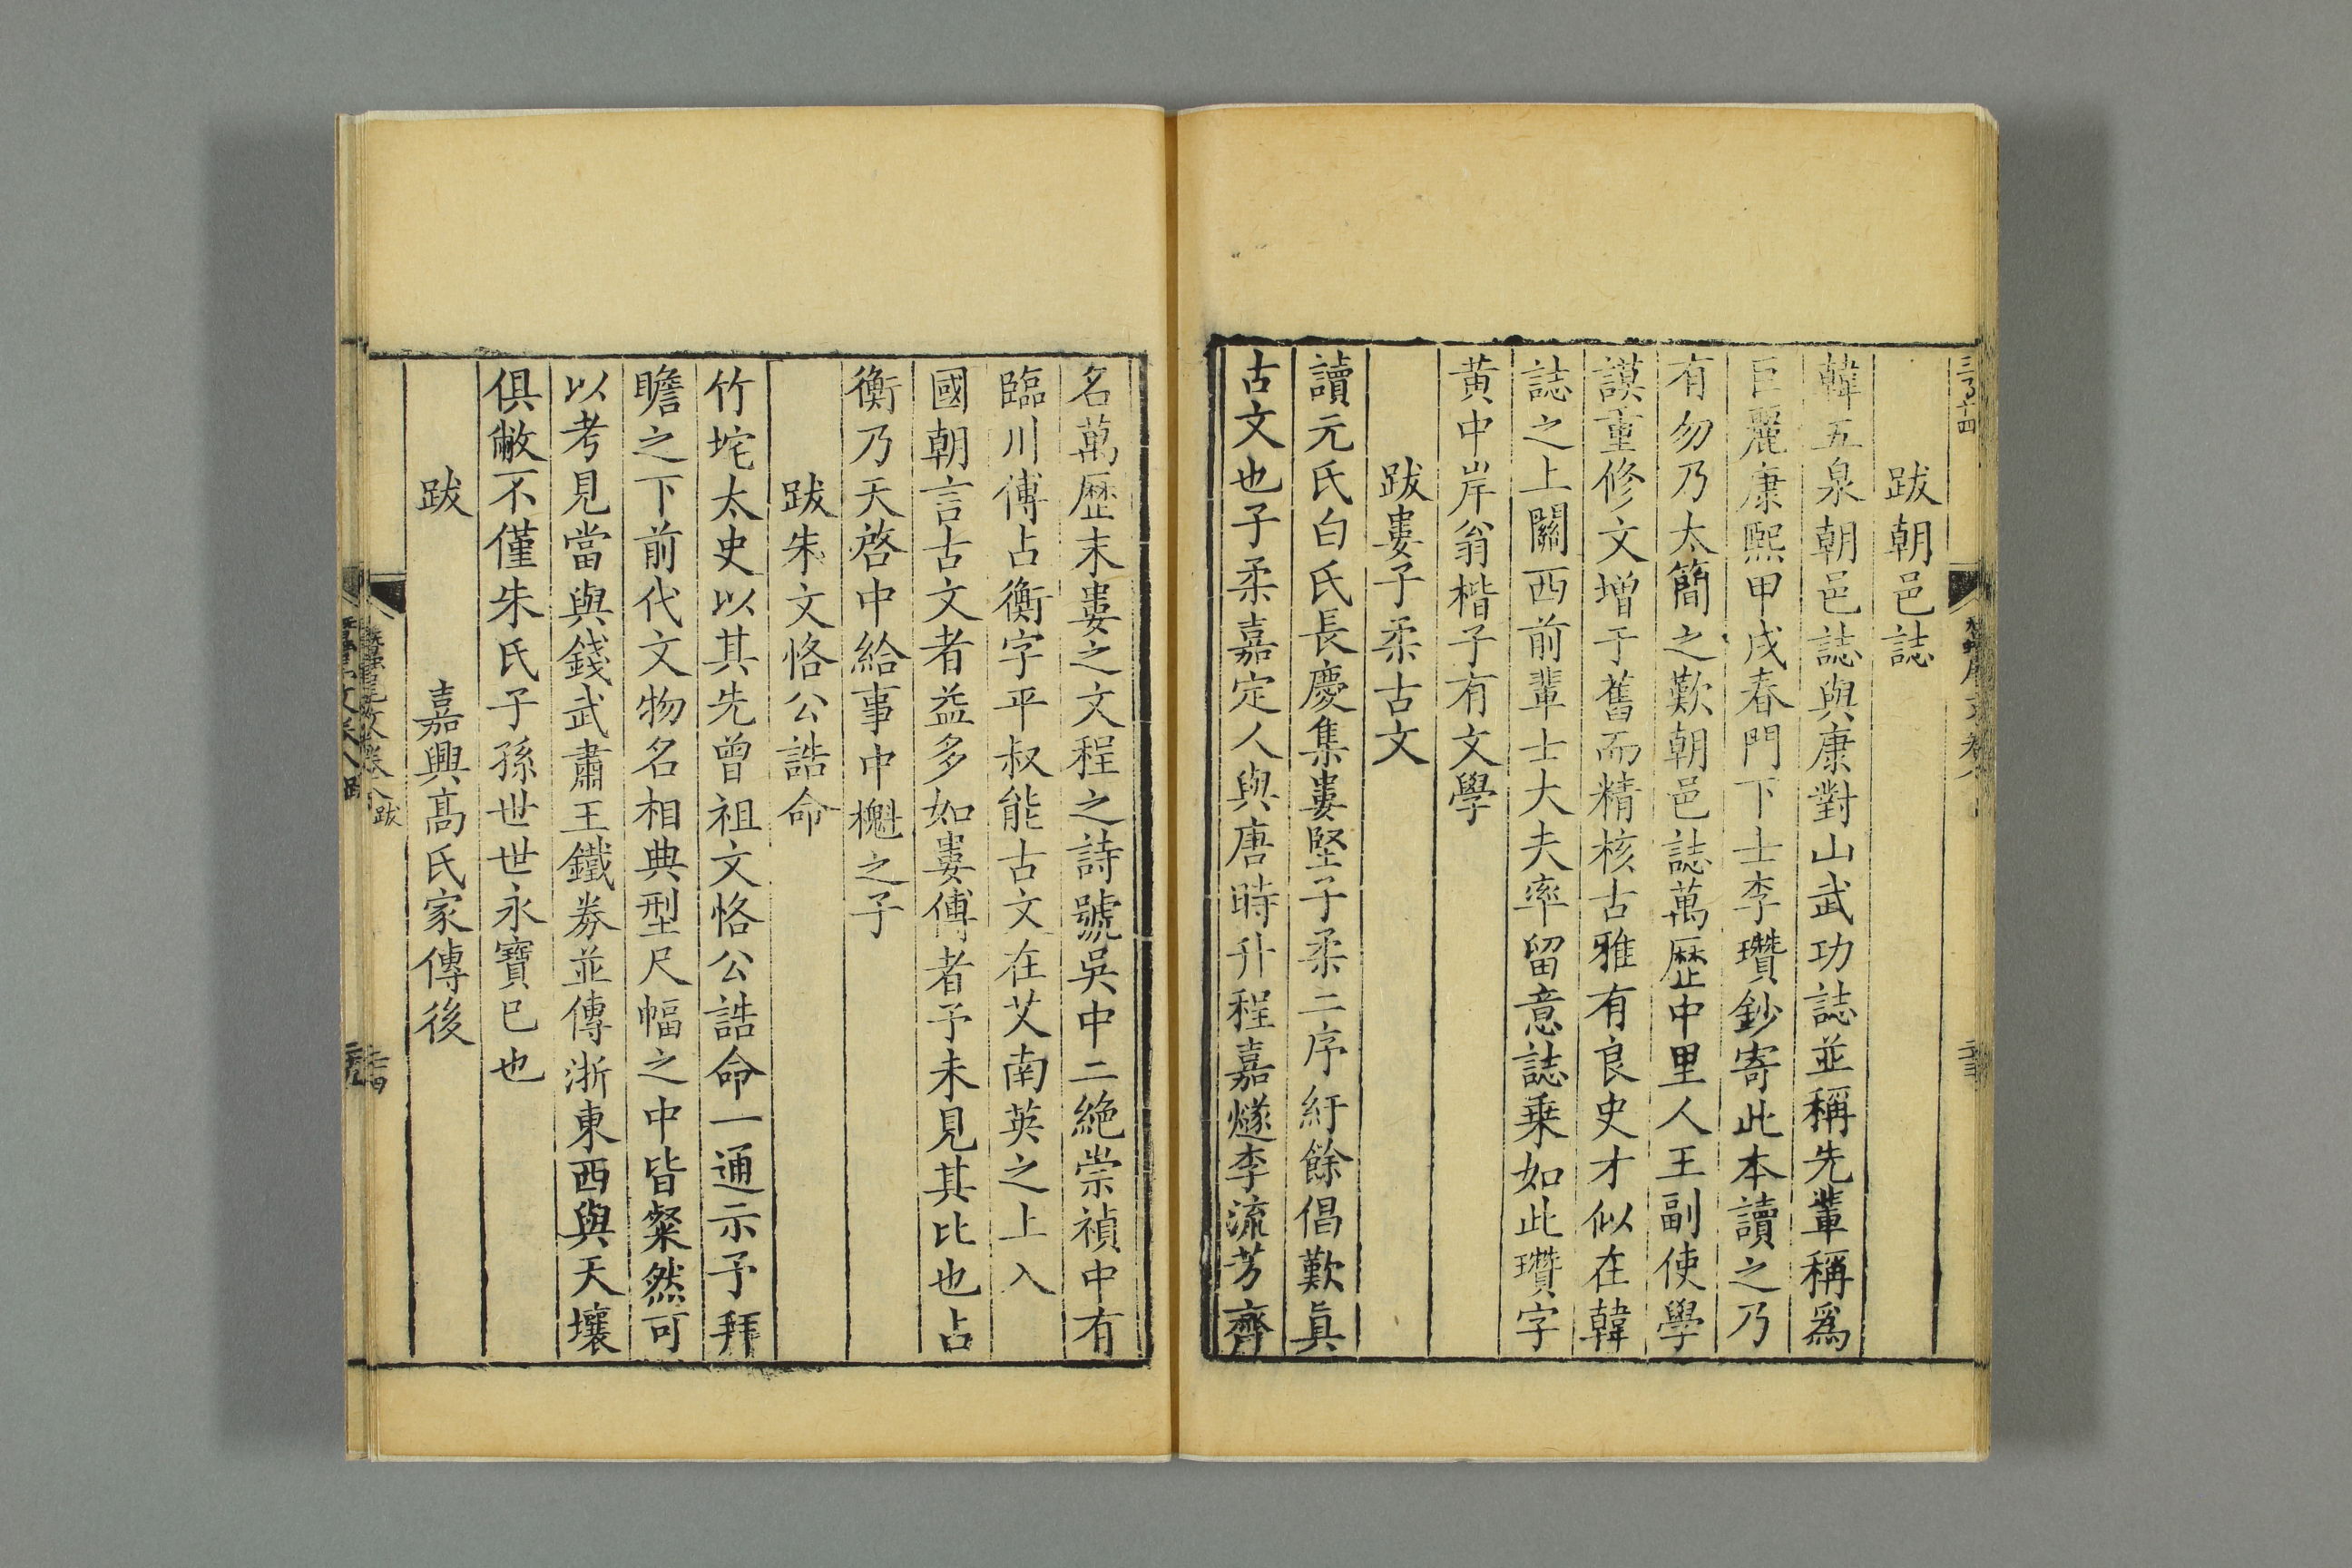 跋朝邑誌
韓五泉朝邑誌與康對山武功誌並稱先輩稱爲
巨麗康熙甲戌春門下士李瓚鈔寄此本讀之乃
有勿乃太簡之歎朝邑誌萬歴中里人王副使學
謨重修文增于舊而精核古雅有良史才似在韓
誌之上關西前輩士大夫率留意誌乗如此瓚字
黄中岸翁楷子有文學
跋婁子柔古文
讀元氏白氏長慶集婁堅子柔二序紆餘倡歎眞
古文也子柔嘉定人與唐時升程嘉燧李流芳齊
名萬歴末婁之文程之詩號吳中二絶崇禎中有
臨川傅占衡字平叔能古文在艾南英之上入
國朝言古文者益多如婁傅者予未見其比也占
衡乃天啓中給事中櫆之子
跋朱文恪公誥命
竹垞太史以其先曾祖文恪公誥命一通示予拜
瞻之下前代文物名相典型尺幅之中皆粲然可
以考見當與錢武肅王鐵券並傳浙東西與天壤
俱敝不僅朱氏子孫世世永寶已也
跋　　嘉興高氏家傳後
跋